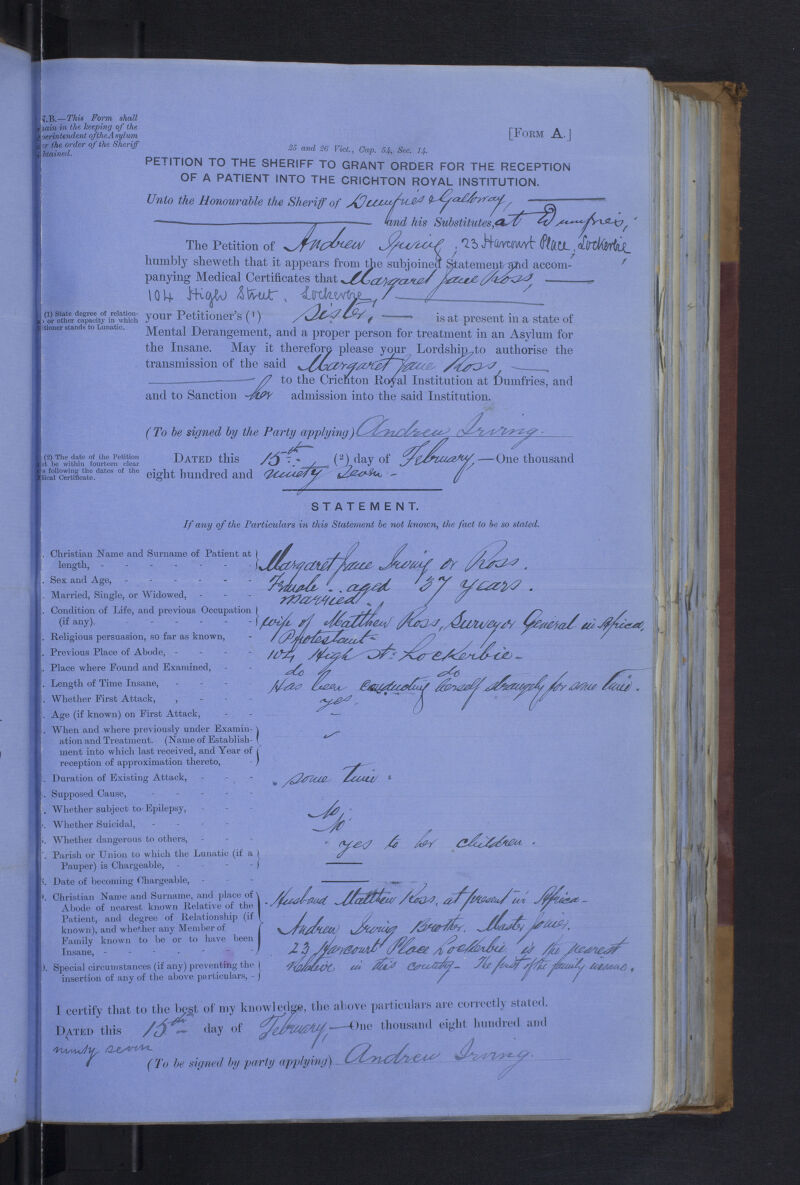 N.B.—This Form shall
in the keeping of the
of the Asylum
the order of the Sheriff
[FORM A.]
25 and 26 Vict., Cap. 54, Sec. 14.
PETITION TO THE SHERIFF TO GRANT ORDER FOR THE RECEPTION
OF A PATIENT INTO THE CRICHTON ROYAL INSTITUTION.
Unto the Honourable the Sheriff of Dumfries & Galloway,
and his Substitutes, at Dumfries,
The Petition of Andrew Irving, 23 Harcourt Place, Lockerbie,
humbly sheweth that it appears from the subjoined Statement and accom-
panying Medical Certificates that Margaret Jane Ross,
104 High Street, Lockerbie,
(1) State degree of relation-
or other capacity in which
stands to Lunatic.
your Petitioner's (1) Sister, is at present in a state of
Mental Derangement, and a proper person for treatment in an Asylum for
the Insane. May it therefore please your Lordship to authorise the
transmission of the said Margaret Jane Ross,
to the Crichton Royal Institution at Dumfries, and
and to Sanction her admission into the said Institution.
(To be signed by the Party applying) Andrew Irving.
(2) The date of the Petition
be within fourteen clear
following the dates of the
Certificate.
DATED this 15th (2) day of February,—One thousand
eight hundred and ninety seven -
STATEMENT.
If any of the Particulars in this Statement be not known, the fact to be so stated.
Christian Name and Surname of Patient at
length, - Margaret Jane Irving or Ross.
Sex and Age, - Female .. aged 37 years.
Married, Single, or Widowed, - married.
Condition of Life, and previous Occupation
(if any). - wife of Matthew Ross, Surveyor General in Africa.
Religious persuasion, so far as known, - Protestant
Previous Place of Abode, - 104 High St. Lockerbie -
Place where Found and Examined, - do do
Length of Time Insane, - Has been conducting herself strangely for some time.
Whether First Attack, yes.
Age (if known) on First Attack, -
When and where previously under Examin-
ation and Treatment. (Name of Establish-
ment into which last received, and Year of
reception of approximation thereto,
Duration of Existing Attack, - some time.
Supposed Cause, -
Whether subject to Epilepsy, - No.
Whether Suicidal, - No
Whether dangerous to others, - yes to her children.
Parish or Union to which the Lunatic (if a
Pauper) is Chargeable, -
Date of becoming Chargeable, -
Christian Name and Surname, and place of
Abode of nearest known Relative of the
Patient, and degree of Relationship (if
known), and whether any Member of
Family known to be or to have been
Insane, -
Husband Matthew Ross, at present in Africa -
Andrew Irving Brother. Master
23 Harcourt Place Lockerbie is the nearest
relative in this country - The first of the family insane.
Special circumstances (if any) preventing the
insertion of any of the above particulars, -
I certify that to the best of my knowledge, the above particulars are correctly stated.
DATED this 15th day of February,—One thousand eight hundred and
ninety seven
(To be signed by party applying) Andrew Irving.